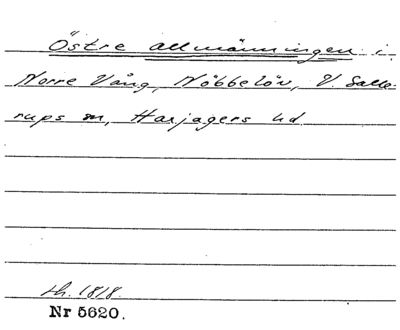 Östre allmänningen i
Norre Vång, Nöbbelöv, V. Salle-
rups sn, Harjagers hd
th. 1818.
Nr 5620.